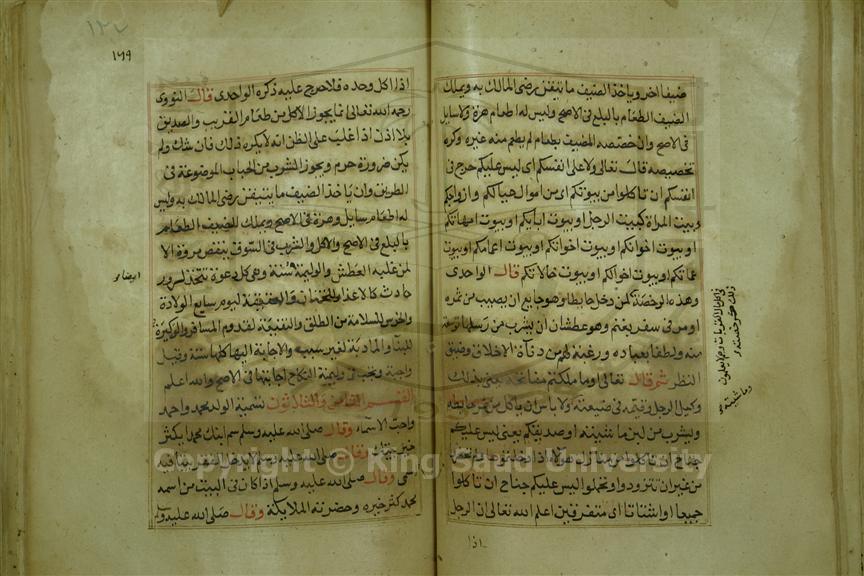 ضيفا اخر وياخذ الضيف ما تيقن رضى المالك به ويملك
الضيف الطعام بالبلع في الاصح وليس له اطعام هرة ولا سايل
في الاصح وان خصصه المضيف بطعام لم يطعم منه غيره وكره
تخصيصه قال تعالى ولا على انفسكم اى ليس عليكم حرج في
انفسكم ان تاكلوا من بيوتكم اى من اموال عيالكم وازواجكم
وبيت المراة كبيت الرجل او بيوت ابايكم او بيوت امهاتكم
او بيوت اخوانكم او بيوت اخواتكم او بيوت اعمامكم او بيوت
عماتكم او بيوت اخوالكم او بيوت خالاتكم قال الواحدى
وهذه الرخصة لمن دخل حايطا وهو جايع ان يصيب من ثمره
او مر في سفر بغنم وهو عطشان ان يشرب من رسلها توسعة
منه ولطفا بعباده ورغبة لهم من دناة الاخلاق وضيق
النظر ثم قال تعالى او ما ملكتم مفاتحه يعنى بذلك
وكيل الرجل وقيمه في ضيعته ولا باس ان ياكل من ثمر حايطه
ويشرب من لبن ماشيته او صديقكم يعنى ليس عليكم
جناح ان تاكلوا من منازل هولاء اذا دخلتموها
من غير ان تتزودوا وتحملوا ليس عليكم جناح ان تاكلوا
جميعا او اشتاتا اى متفرقين اعلم الله تعالى ان الرجل
اذا
١٢٩
اذا اكل وحده فلا حرج عليه ذكره الواحدى قال النووى
رحمه الله تعالى يجوز الاكل من طعام القريب والصديق
بلا اذن اذا غلب على الظن انه لا يكره ذلك فان شك ولم
يكن ضرورة حرم ويجوز الشرب من الحباب الموضوعة في
الطريق وان ياخذ الضيف ما يتيقن رضى المالك به وليس
له اطعام سايل وهرة في الاصح ويملك الضيف الطعام
بالبلع في الاصح والاكل والشرب في السوق ينقص مروة الا
لمن غلبه العطش والوليمة سنة وهى كل دعوة تتخذ لسرور
حادث كالاعذار للختان والعقيقة ليوم سابع الولادة
والخرس للسلامة من الطلق والنقيعة لقدوم المسافر والوكيرة
للبنا والمادبة لغير سبب والاجابة اليها كلها سنة وقيل
واجبة وتجب في وليمة النكاح اجابتها في الاصح والله اعلم
تسمية الولد محمد واحمد
واحب الاسماء وقال صلى الله عليه وسلم سم ابنك محمدا يكثر
خير بيتك وقال صلى الله عليه وسلم لا يدخل الفقر بيتا فيه
سمى وقال صلى الله عليه وسلم اذا كان في البيت من اسمه
محمد كثر خيره وحضرته الملايكة وقال صلى الله عليه وسلم
Copyright © King Saud University